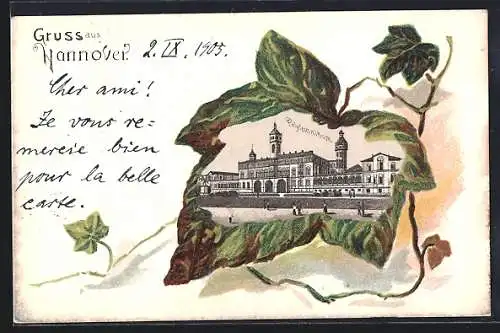 Gruss aus
Hannover. 2. IX. 1905.
Cher ami!
Je vous re-
mercie bien
pour la belle
carte.